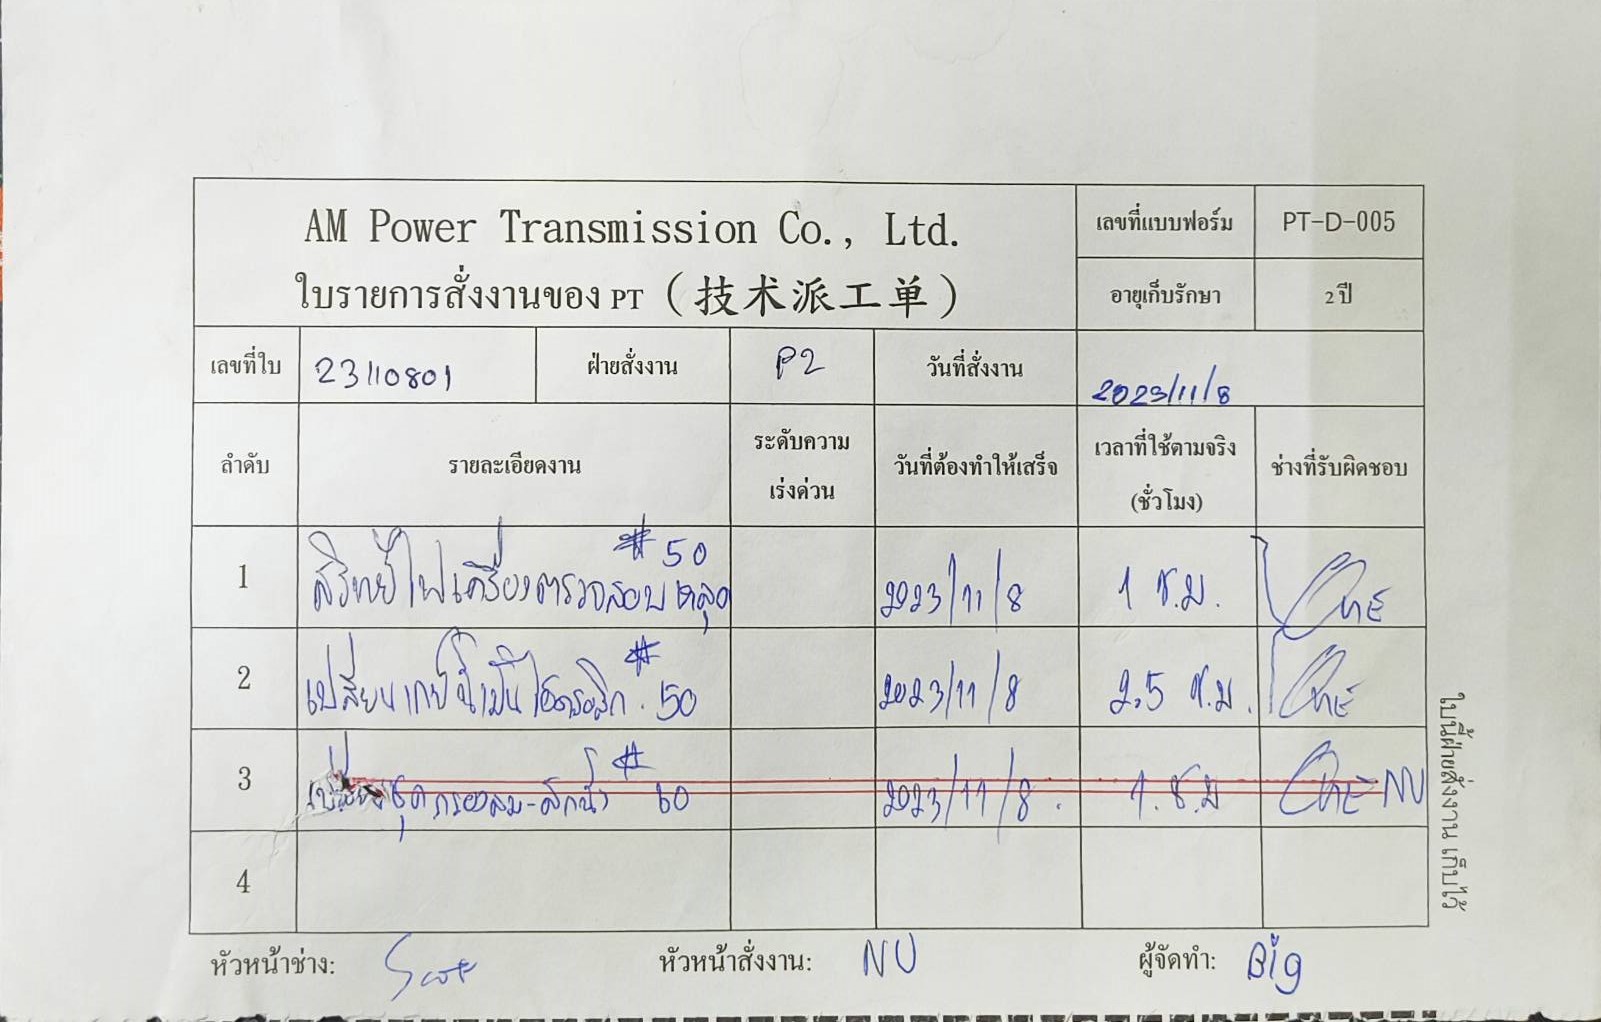 AM Power Transmission Co., Ltd.
ใบรายการสั่งงานของ PT (技术派工单)
เลขที่แบบฟอร์ม PT-D-005
อายุเก็บรักษา 2 ปี
เลขที่ใบ 23110801 ฝ่ายสั่งงาน P2 วันที่สั่งงาน 2023/11/8
ลำดับ รายละเอียดงาน ระดับความเร่งด่วน วันที่ต้องทำให้เสร็จ เวลาที่ใช้ตามจริง (ชั่วโมง) ช่างที่รับผิดชอบ
1 ไฟเครื่องตรวจสอบหลุด #50 2023/11/8 1 ช.ม.
2 เปลี่ยนเกย์น้ำมันไฮดรอลิก #50 2023/11/8 2.5 ช.ม.
3 เปลี่ยนชุดกรองลม-ดักน้ำ # 60 2023/11/8. 1.ช.ม NU
4
หัวหน้าช่าง: หัวหน้าสั่งงาน: NU ผู้จัดทำ: Big
ใบนี้ฝ่ายสั่งงาน เก็บไว้